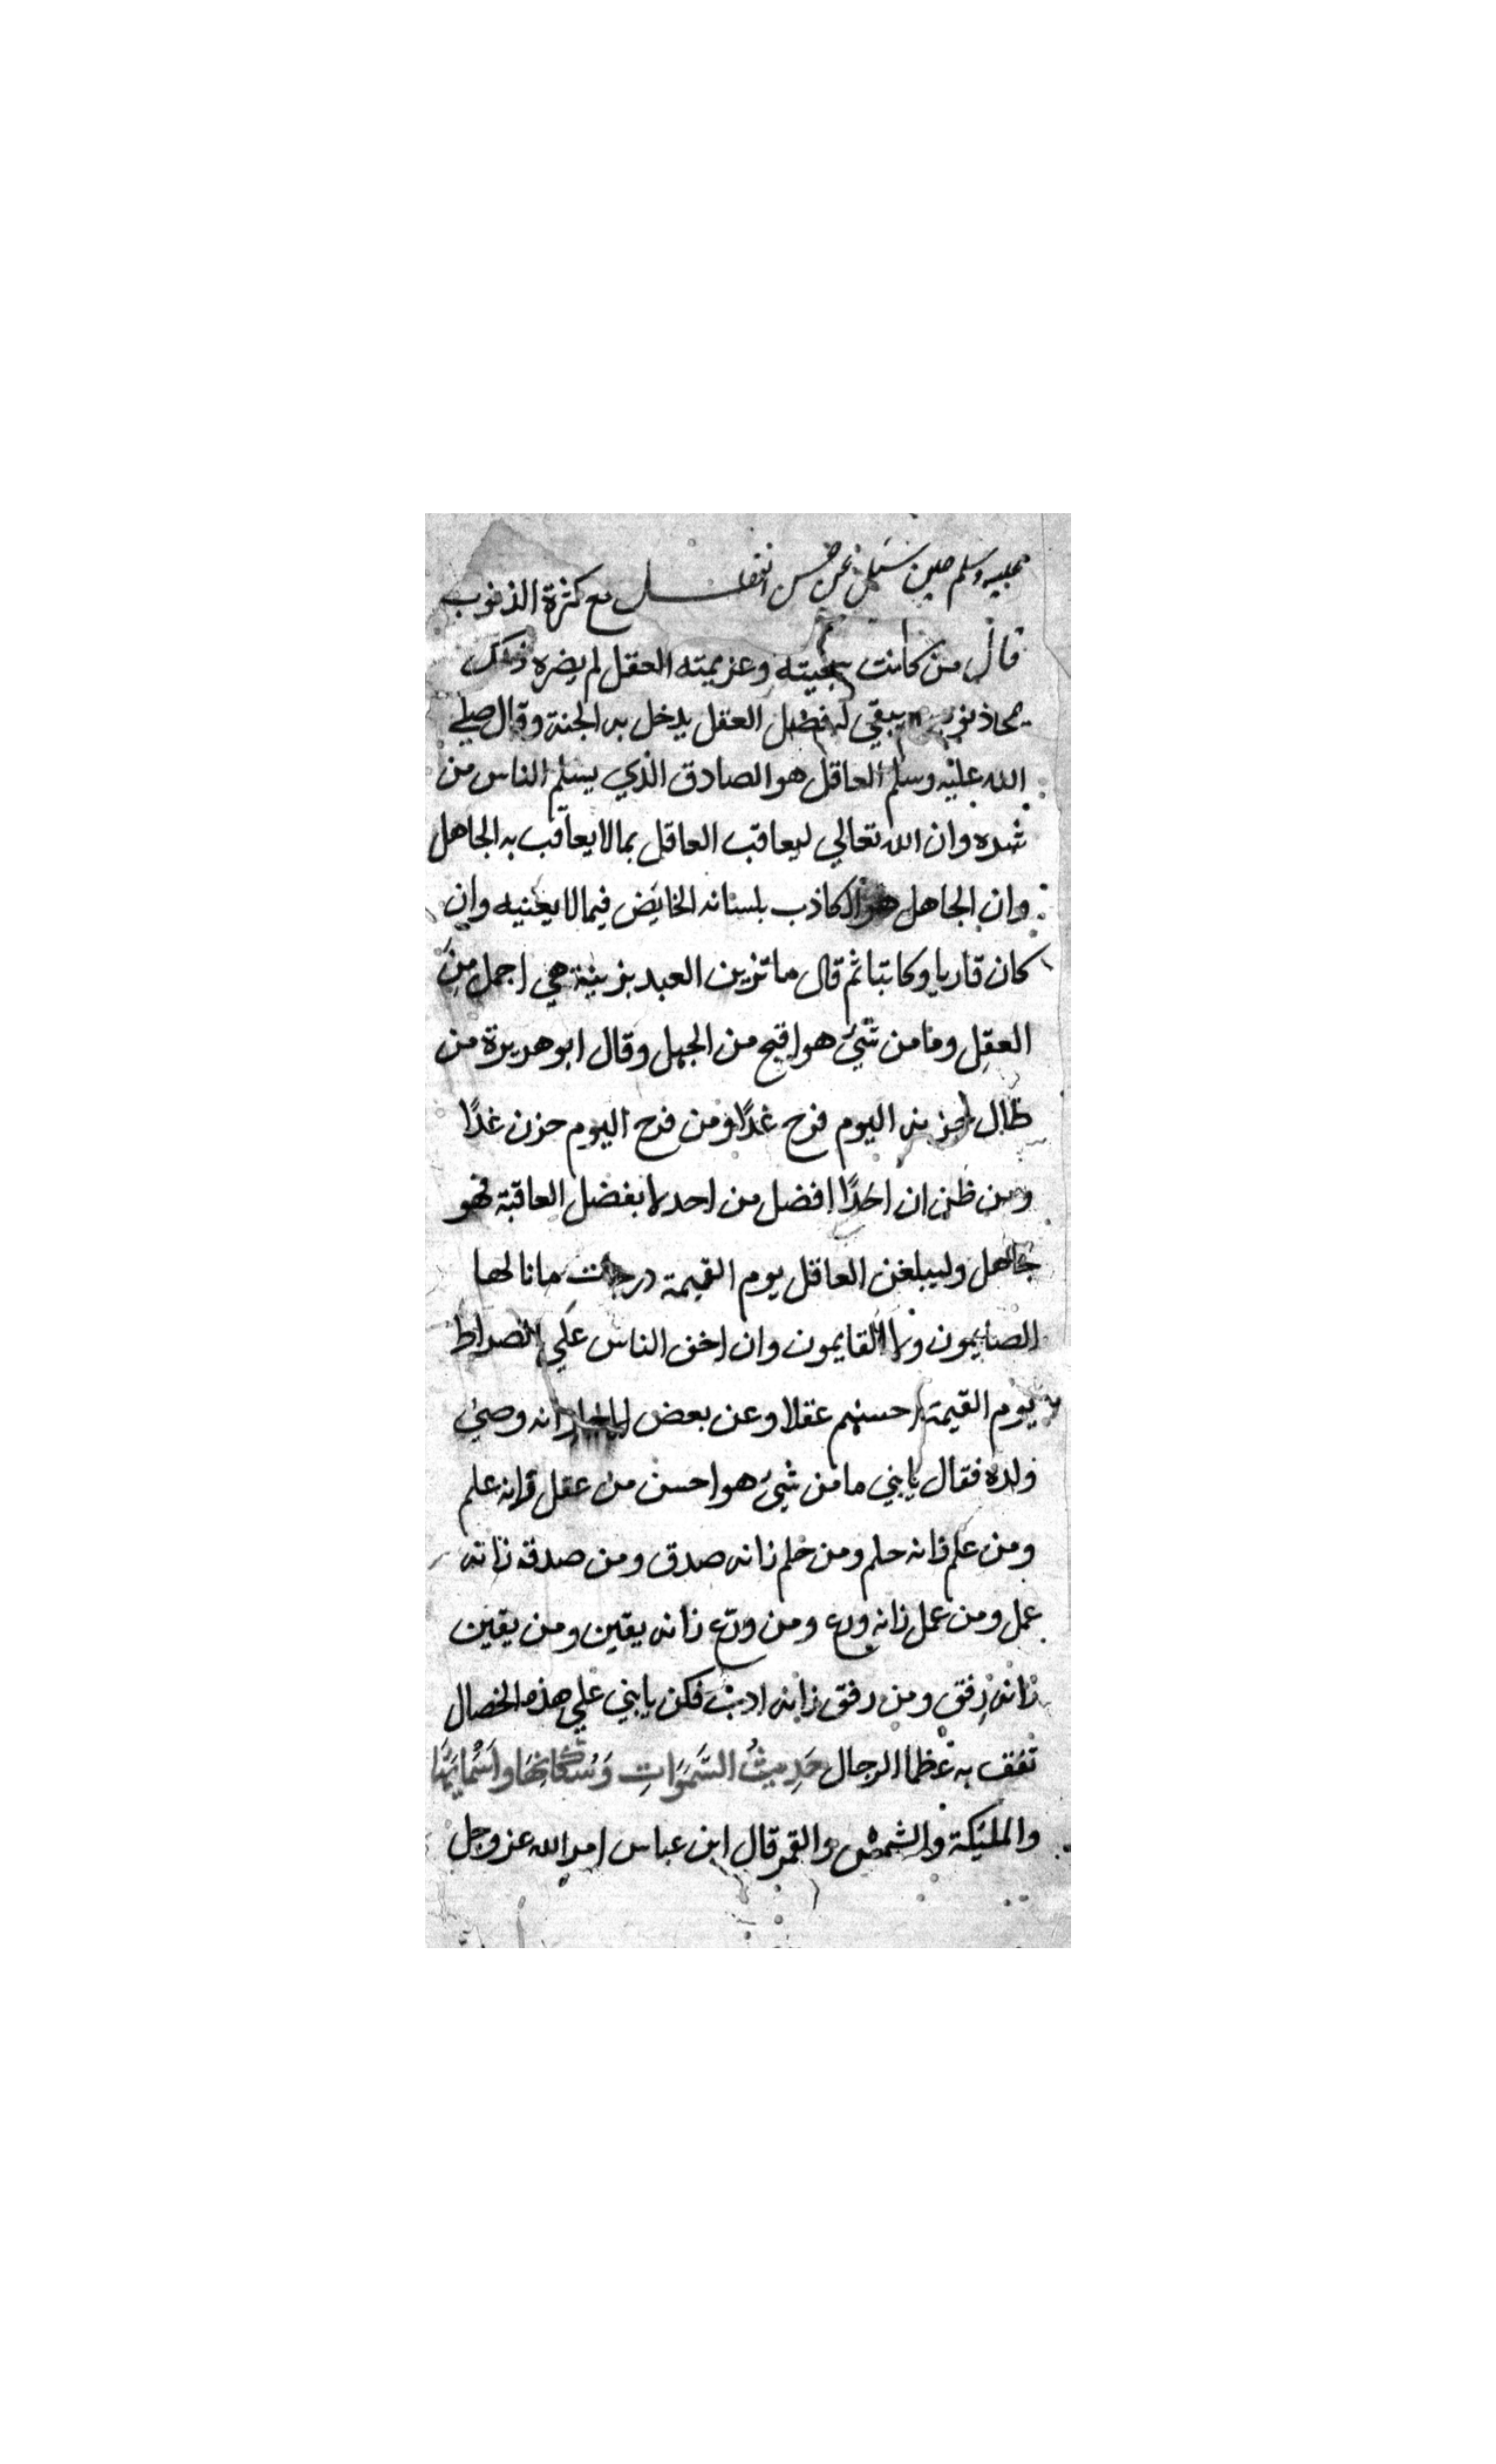 عليه وسلم حين سيل عن حسن العقل مع كثرة الذنوب
قال من كانت سجيته وعزيمته العقل لم يضره ذلك
يمحا ذنوبه ويبقي له فضل العقل يدخل به الجنة وقال صلي
الله عليه وسلم العاقل هو الصادق الذي يسلم الناس من
شره وان الله تعالي ليعاقب العاقل بما لا يعاقب به الجاهل
وان الجاهل هو الكاذب بلسانه الخايض فيما لا يعنيه وان
كان قاريا وكاتبا ثم قال ما تزين العبد بزينة هي اجمل من
العقل وما من شيء هو اقبح من الجهل وقال ابو هريرة من
طال حزنه اليوم فرح غدًا ومن فرح اليوم حزن غدًا
ومن ظن ان احدًا افضل من احد لا بفضل العاقبة فهو
جاهل وليبلغن العاقل يوم القيمة درجات ما نالها
الصايمون ولا القايمون وان اخف الناس علي الصراط
يوم القيمة احسنهم عقلا وعن بعض انه وصي
ولده فقال يا بني ما من شيء هو احسن من عقل زانه علم
ومن علم زانه حلم ومن حلم زانه صدق ومن صدق زانه
عمل ومن عمل زانه ورع ومن ورع زانه يقين ومن يقين
زانه رفق ومن رفق زانه ادب فكن يا بني علي هذه الخصال
تفق به عظما الرجال حَدِيثُ السَّمَوَاتِ وَسُكَّانِهَا وَاسْمَايِهَا
والمليكة والشمس والقمر قال ابن عباس امر الله عز وجل